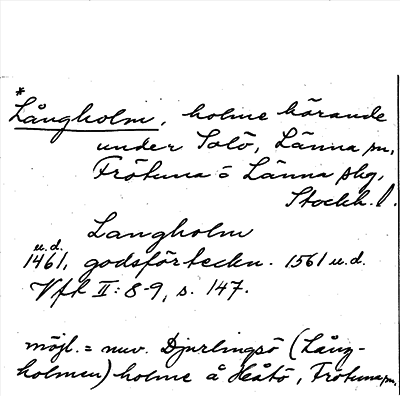 *
Långholm, holme hörande
under Solö, Länna sn,
Frötuna o Länna skg,
Stockh. l.
Langholm
u.d.
1461, godsförteckn. 1561 u.d.
Vfl II:8-9, s. 147.
möjl. = nuv. Djurlingsö (Lång-
holmen) holme å Håtö, Frötuna sn.